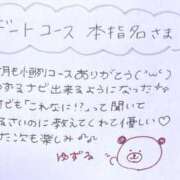 デートコース 本指名さま
月も小旅行コースありがとう(´ω`)
ゆずるナビ出来るようになった
ナビも"こんなに!?"って聞いて
るさいのに教えてくれて優しい♡
た次も楽しみ
ゆずる